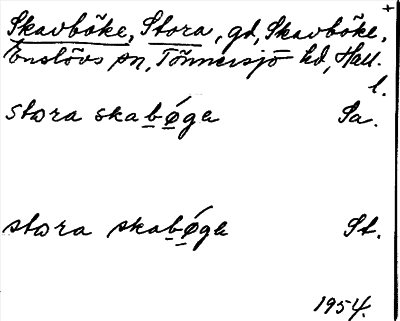 Skavböke, Stora, gd, Skavböke, +
Enslövs sn, Tönnersjö hd, Hall.
l.
stora skabǿge Sa.
stora skabǿge St.
1954.